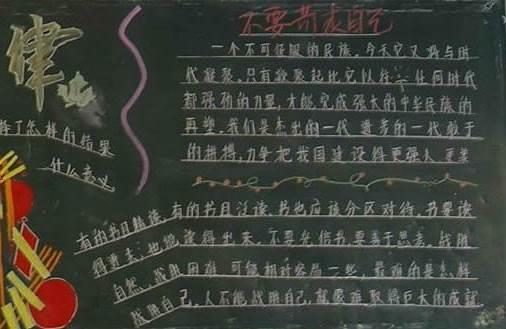 不要苛求自己
一个不可征服的民族，今天它又将与时
代凝聚，只有凝聚起比它以往任何时代
都强劲的力量，才能完成强大的中华民族的
再塑。我们是杰出的一代 进步的一代 敢于
的拼搏，力争把我国建设得更强大 更美
律
样了怎样的结果
什么意义
有的书目精读，有的书目泛读，书也应该分区对待，书要读
得进去，也能读得出来，不要光信书，要善于思考，战胜
自然，战胜困难 可能相对容易一些，最难的是怎样
战胜自己，人不能战胜自己，就很难取得巨大的成就